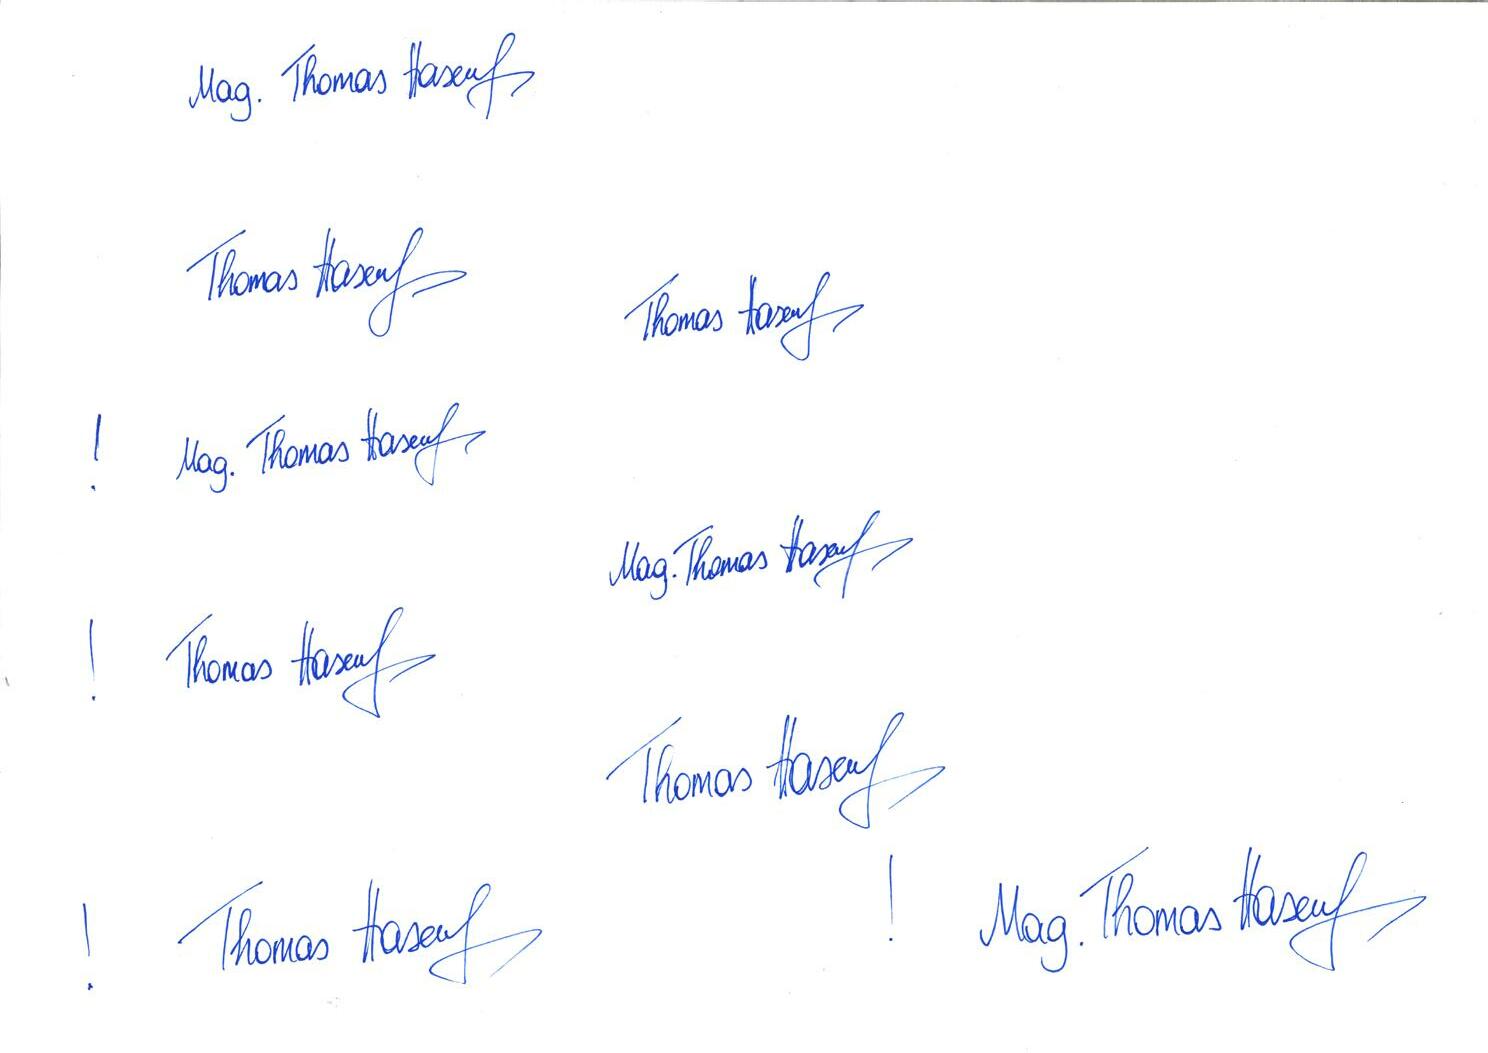 Mag. Thomas Hasenf
Thomas Hasenf
Thomas Hasenf
! Mag. Thomas Hasenf
Mag. Thomas Hasenf
! Thomas Hasenf
Thomas Hasenf
! Thomas Hasenf
! Mag. Thomas Hasenf